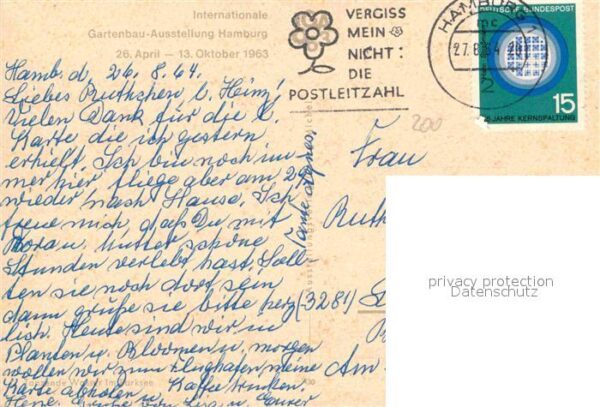 Internationale
Gartenbau-Ausstellung Hamburg
26. April — 13. Oktober 1963
VERGISS
MEIN
NICHT:
DIE
POSTLEITZAHL
HAMBURG
27.8.64
2
DEUTSCHE BUNDESPOST
15
25 JAHRE KERNSPALTUNG
200
Hamb. d. 26.8.64.
Liebes Ruthchen u. Heim!
Vielen Dank für die l.
Karte die ich gestern
erhielt. Ich bin noch im
mer hier, fliege aber am 29
wieder nach Hause. Ich
freue mich, daß Du mit
u. Mutter schöne
Stunden verlebt hast. Soll-
ten sie noch dort sein
dann grüße sie bitte herz
lich. Heute sind wir in
Planten u. Bloomen u. morgen
wollen wir zum Flughafen meine
Karte abholen u. Kaffee trinken.
Grüße von u. Eurer
Tante Agnes
Frau
Ruth
(3281)
Am
privacy protection
Datenschutz